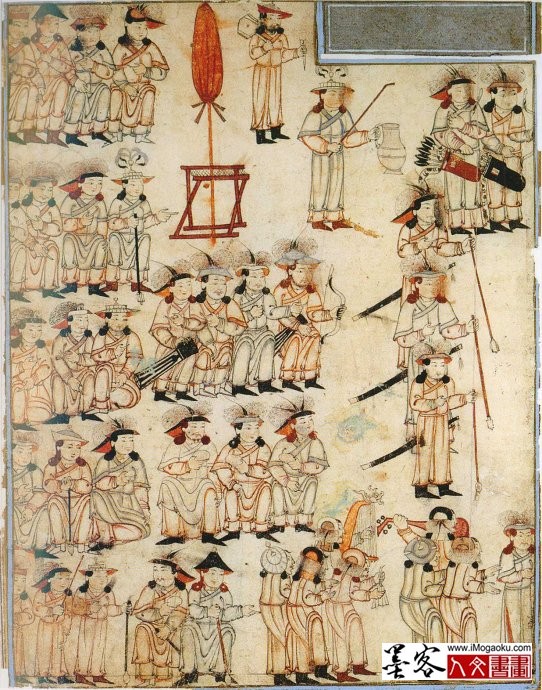 墨客
www.iMogaoku.com
人文書畫